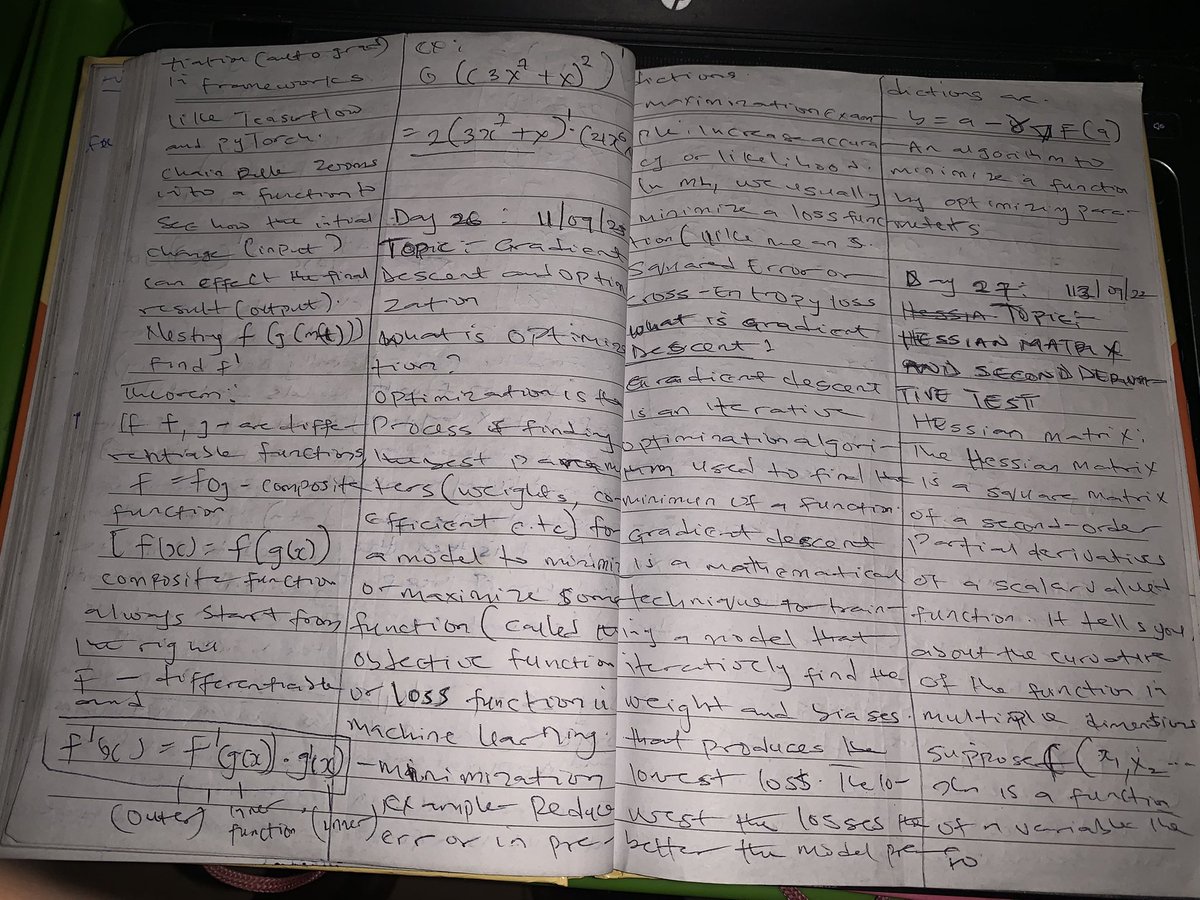 tiation (autograd)
in frameworks
like Teasurflow
and pyTorch.
chain Rule Zooms
into a function to
See how the intial
change (input)
can effect the final
result (output).
f (g (
find f'
theorem:
If f, g - are diffe-
rentiable functions
f = fog - composite
function
[f(x) = f(g(x))
composite function
always start from
the right
f - differentiable
and
f'(x) = f'(g(x)) · g'(x)
(outer) inner function (inner)
Ex:
((3x⁷ + x)²)
= 2(3x⁷ + x)¹ · (21x⁶
Day 26 : 11/09/25
Topic:- Gradient
Descent and Opti
zation
what is optimiza
tion?
optimization is the
process of finding
the best parame
ters (weights, co-
efficient e.tc) for
a model to minimi
or maximize some
function (called
objective function
or loss function i
machine learning.
-minimization
example- Reduce
error in pre-
dictions.
-maximization Exam
ple: Increase accura
cy or likelihood.
In ML, we usually
minimize a loss func
tion (like means
squared Error or
cross-Entropy loss
what is gradient
Descent?
Gradient descent
is an iterative
optimination algori-
thm used to find the
minimun of a function.
gradient descent
is a mathematical
technique for train-
ing a model that
iteratively find the
weight and biases.
that produces the
lowest loss. the lo-
west the losses the
better the model pre-
dictions are.
b = a - γ ∇ F(a)
-An algorithm to
minimize a functio
by optimizing para-
meters
Day 27:
HESSIA Topic:-
HESSIAN MATRIX
AND SECOND DERIVA-
TIVE TEST
HEssian matrix:
The Hessian matrix
is a square matrix
of a second-order
Partial derivatives
of a scalar valued
function. It tells you
about the curvature
of the function in
multiple dimensions
suppose f (x₁, x₂ ...
xn is a function
of n variable the